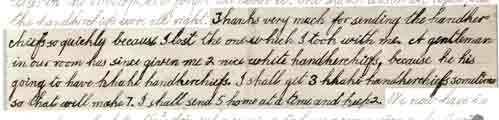 the handkerchief was all right. Thanks very much for sending the handker
chiefs so quickly because I lost the one which I took with me. A gentleman
in our room has since given me 2 nice white handkerchiefs, because he his
going to have khaki handkerchiefs. I shall get 3 khaki handkerchiefs sometime
so that will make 7. I shall send 5 home at a time and keep 2. We now have to